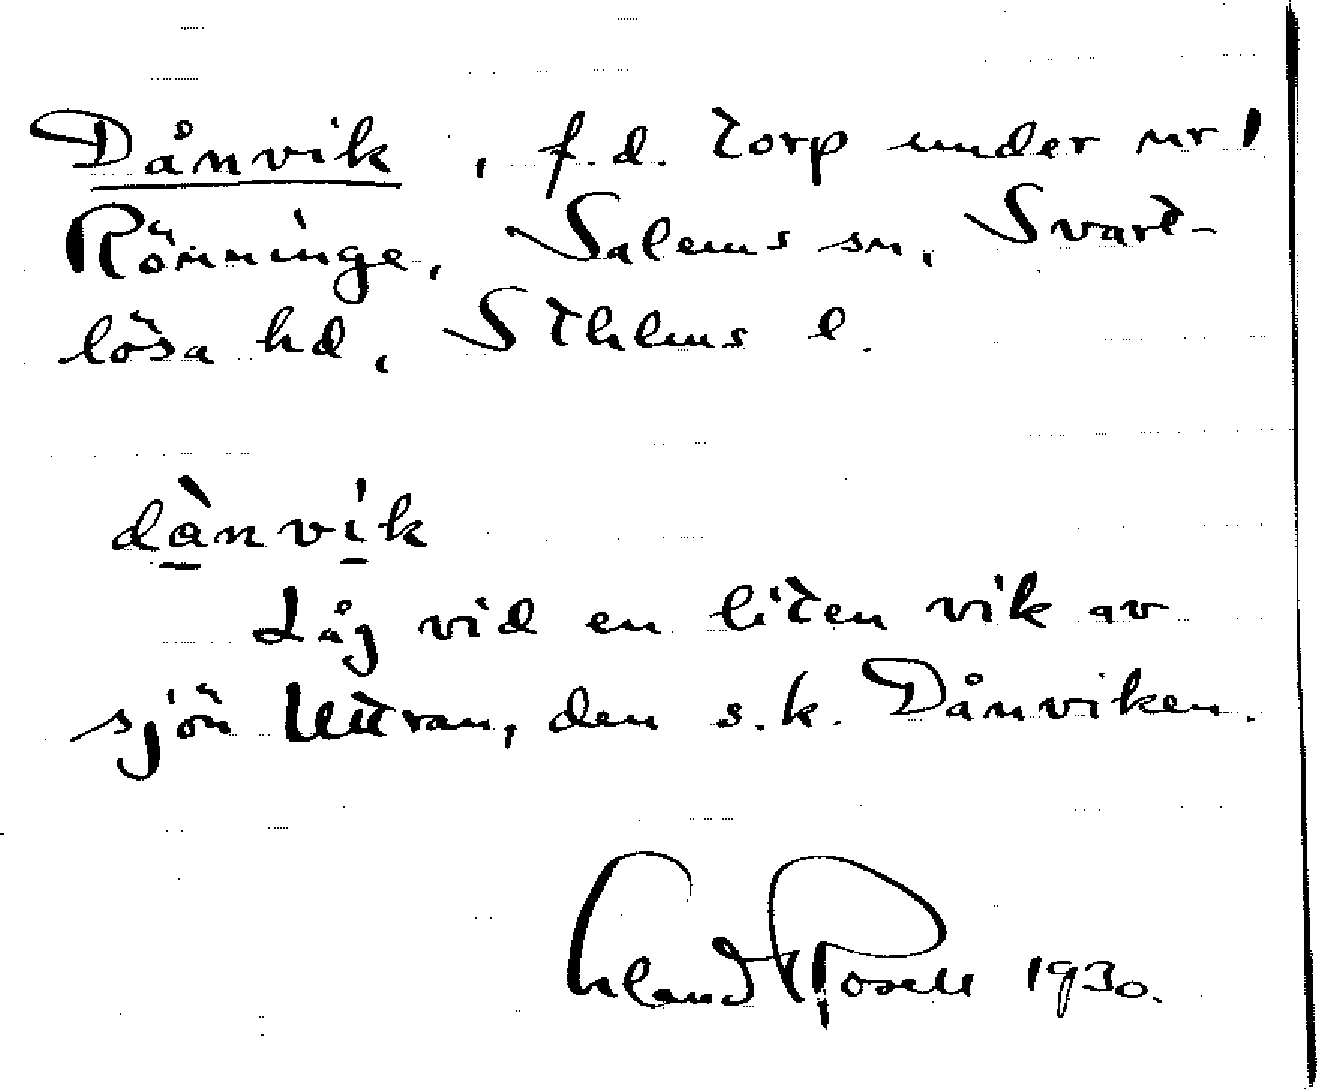 Dånvik, f.d. torp under nr 1
Rönninge, Salems sn, Svart-
lösa hd, Sthlms l.
dànvik
Låg vid en liten vik av
sjön Uttran, den s.k. Dånviken.
Erland Rosell 1930.